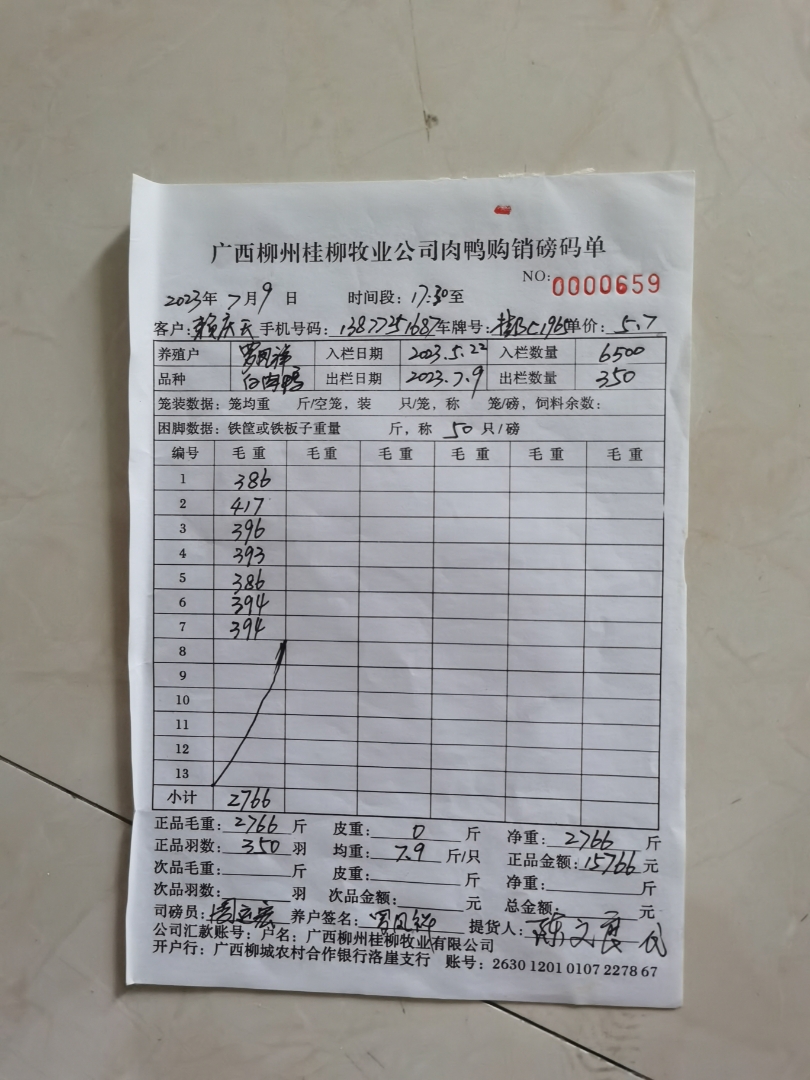 广西柳州桂柳牧业公司肉鸭购销磅码单
NO: 0000659
2023年 7月9日 时间段: 17:30至
客户: 赖庆天 手机号码: 13877251687 车牌号: 单价: 5.7
养殖户 罗凤祥 入栏日期 2023.5.22 入栏数量 6500
品种 白肉鸭 出栏日期 2023.7.9 出栏数量 350
笼装数据: 笼均重 斤/空笼, 装 只/笼, 称 笼/磅, 饲料余数:
困脚数据: 铁筐或铁板子重量 斤, 称 50 只/磅
编号 毛重 毛重 毛重 毛重 毛重 毛重
1 386
2 417
3 396
4 393
5 386
6 394
7 394
8
9
10
11
12
13
小计 2766
正品毛重: 2766 斤 皮重: 0 斤 净重: 2766 斤
正品羽数: 350 羽 均重: 7.9 斤/只 正品金额: 15766 元
次品毛重: 斤 皮重: 斤 净重: 斤
次品羽数: 羽 次品金额: 元 总金额: 元
司磅员: 养户签名: 罗凤祥 提货人:
公司汇款账号: 户名: 广西柳州桂柳牧业有限公司
开户行: 广西柳城农村合作银行洛崖支行 账号: 2630 1201 0107 2278 67